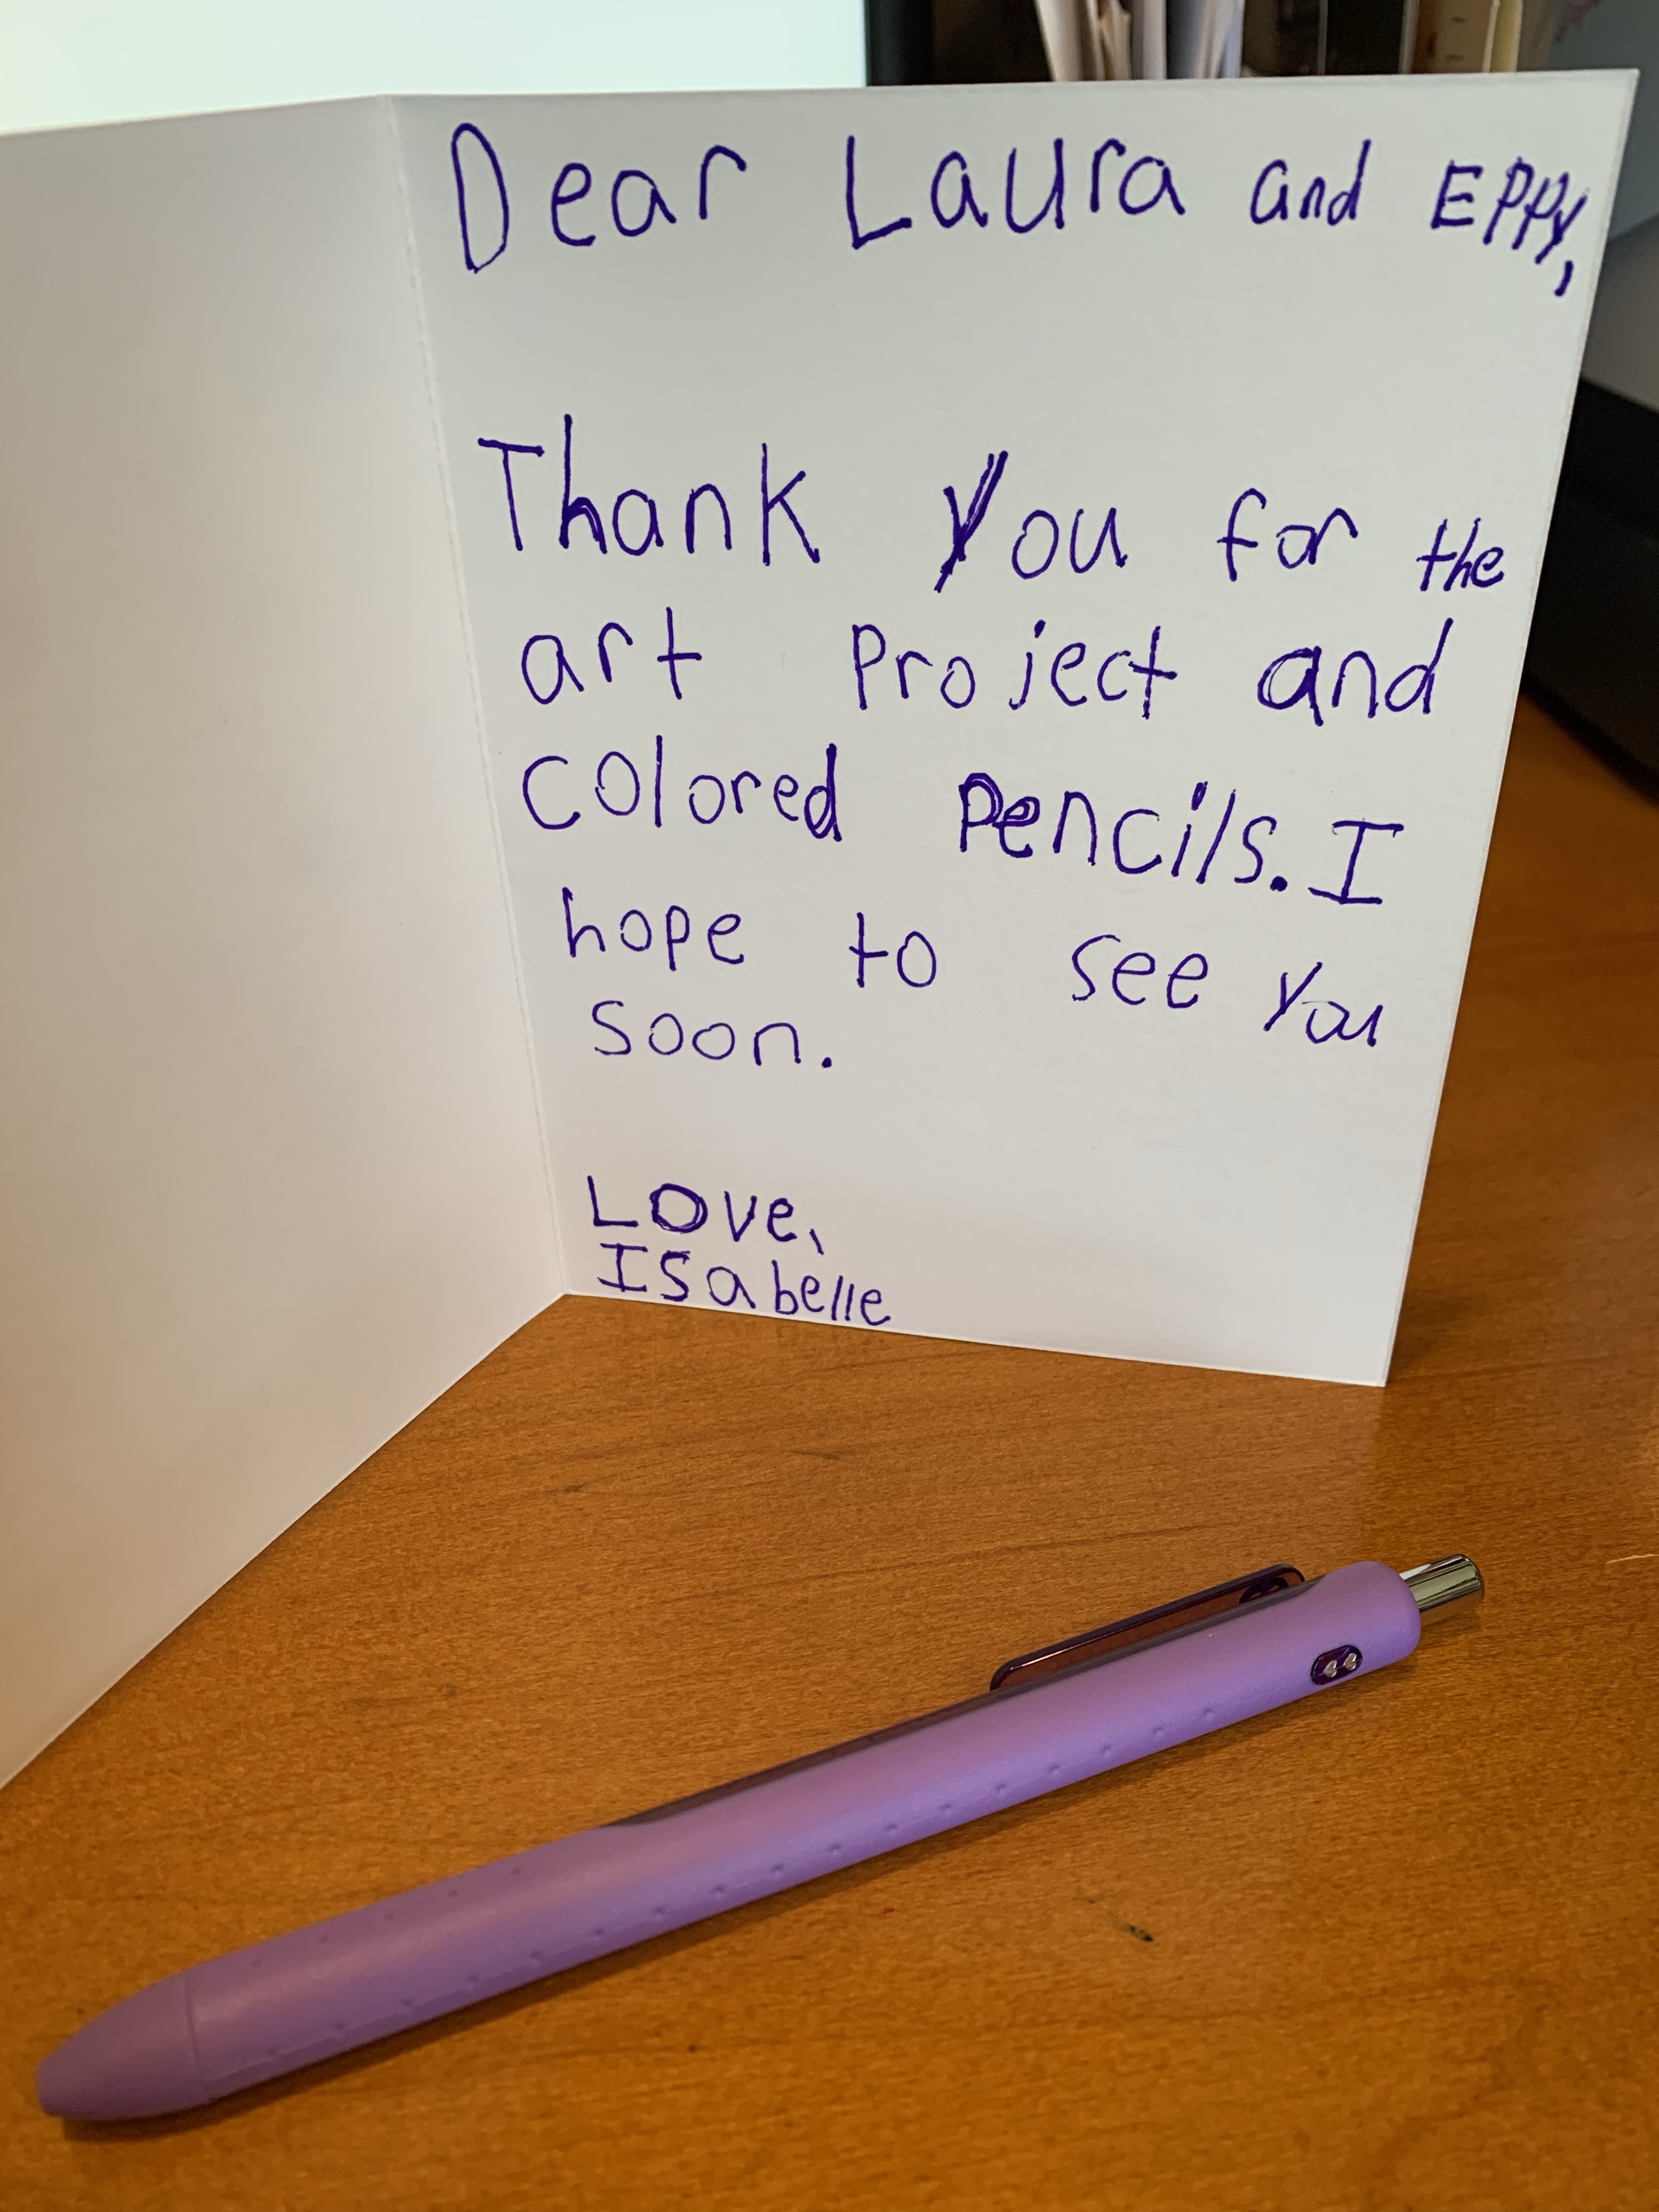 Dear Laura and EPPY,
Thank You for the
art Project and
colored Pencils. I
hope to see You
soon.
LOve,
ISabelle